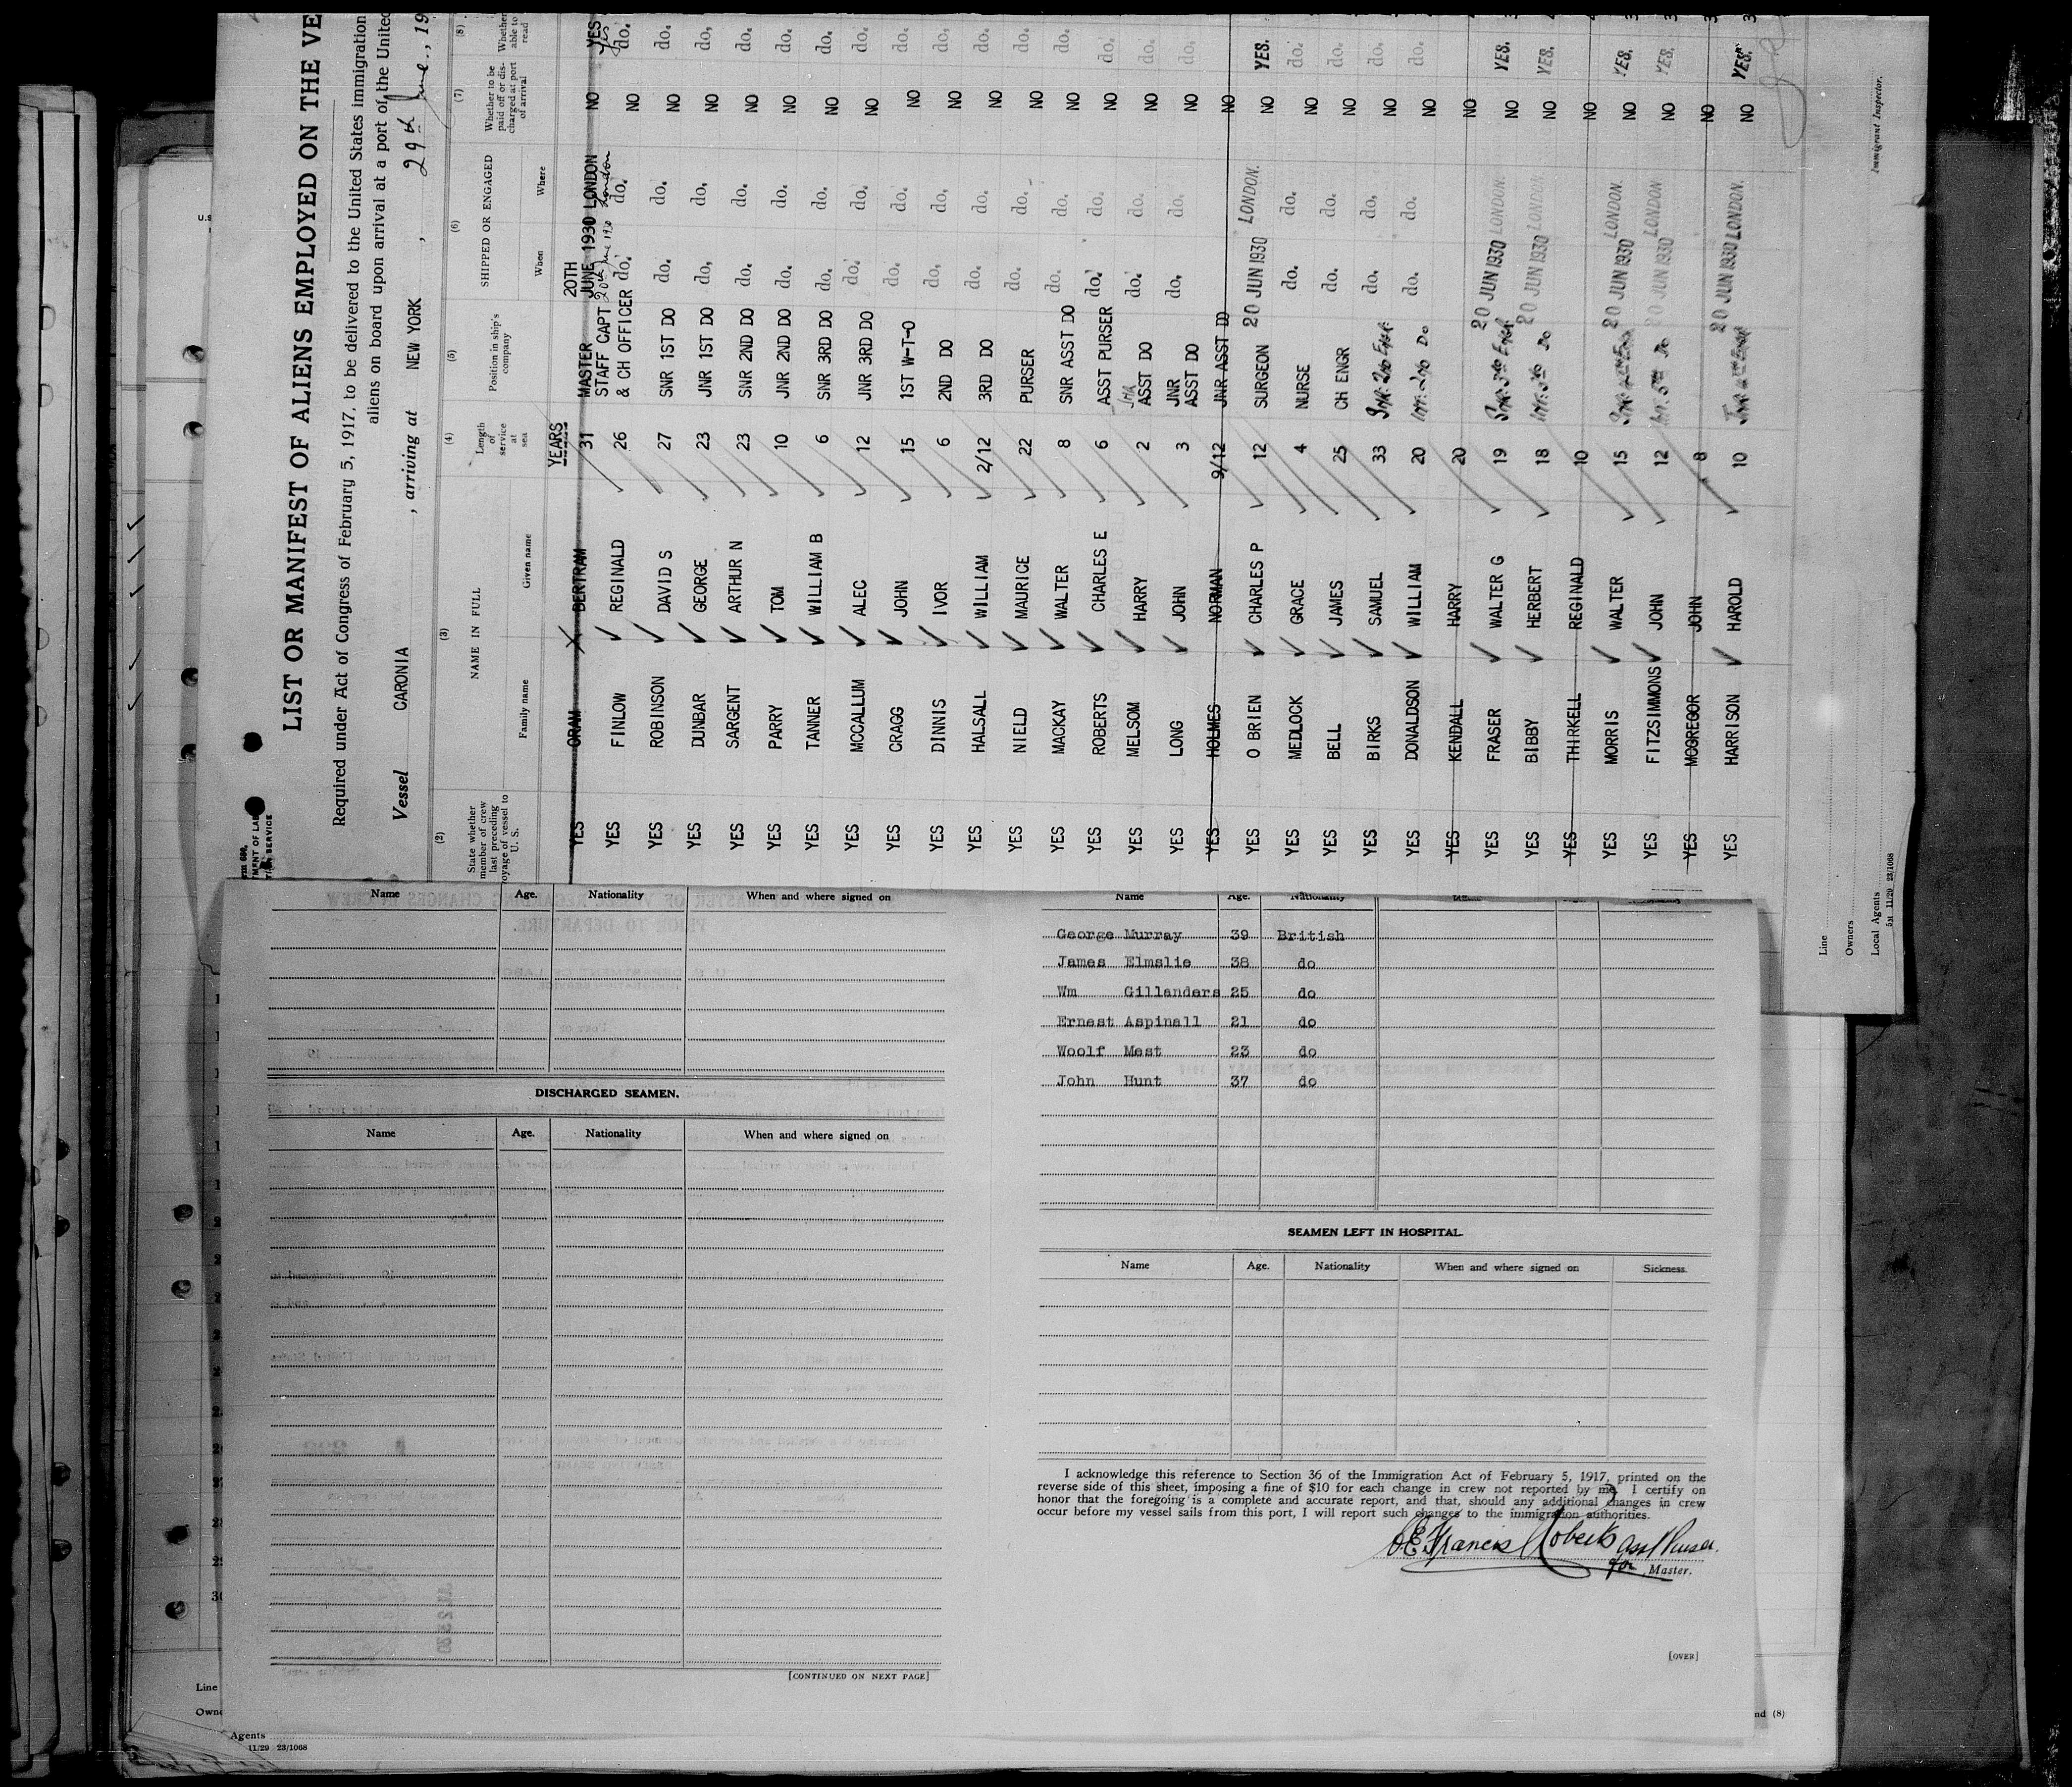 LIST OR MANIFEST OF ALIENS EMPLOYED ON THE VE
Required under Act of Congress of February 5, 1917, to be delivered to the United States Immigration
aliens on board upon arrival at a port of the United
Vessel CARONIA , arriving at NEW YORK , 29th June., 19
(2) (3) (4) (5) (6) (7) (8)
State whether member of crew last preceding voyage of vessel to U. S.
NAME IN FULL
Family name Given name
Length of service at sea
Position in ship's company
SHIPPED OR ENGAGED
When Where
Whether to be paid off or discharged at port of arrival
Whether able to read
YEARS
20TH
YES GRAM BERTRAM 31 MASTER JUNE 1930 LONDON NO YES
STAFF CAPT 20th June 1930 London yes
YES FINLOW REGINALD 26 & CH OFFICER do. do. NO do.
YES ROBINSON DAVID S 27 SNR 1ST DO do. do. NO do.
YES DUNBAR GEORGE 23 JNR 1ST DO do. do. NO do.
YES SARGENT ARTHUR N 23 SNR 2ND DO do. do. NO do.
YES PARRY TOM 10 JNR 2ND DO do. do. NO do.
YES TANNER WILLIAM B 6 SNR 3RD DO do. do. NO do.
YES MCCALLUM ALEC 12 JNR 3RD DO do. do. NO do.
YES CRAGG JOHN 15 1ST W-T-O do. do. NO do.
YES DINNIS IVOR 6 2ND DO do. do. NO do.
YES HALSALL WILLIAM 2/12 3RD DO do. do. NO do.
YES NIELD MAURICE 22 PURSER do. do. NO do.
YES MACKAY WALTER 8 SNR ASST DO do. do. NO do.
YES ROBERTS CHARLES E 6 ASST PURSER do. do. NO do.
YES MELSOM HARRY 2 JNR ASST DO do. do. NO do.
YES LONG JOHN 3 JNR ASST DO do. do. NO do.
YES HOLMES NORMAN 9/12 JNR ASST DO NO
YES O BRIEN CHARLES P 12 SURGEON 20 JUN 1930 LONDON. NO YES.
YES MEDLOCK GRACE 4 NURSE do. do. NO do.
YES BELL JAMES 25 CH ENGR do. do. NO do.
YES BIRKS SAMUEL 33 Snr. 2nd Engr. do. do. NO do.
YES DONALDSON WILLIAM 20 Intr. 2nd Do do. do. NO do.
YES KENDALL HARRY 20 NO
YES FRASER WALTER G 19 Snr. 3rd Engr 20 JUN 1930 LONDON. NO YES.
YES BIBBY HERBERT 18 Intr. 3rd Do 20 JUN 1930 LONDON. NO YES.
YES THIRKELL REGINALD 10 NO
YES MORRIS WALTER 15 20 JUN 1930 LONDON. NO YES.
YES FITZSIMMONS JOHN 12 Do 20 JUN 1930 LONDON NO YES.
YES MCGREGOR JOHN 8 NO
YES HARRISON HAROLD 10 20 JUN 1930 LONDON. NO YES.
Immigrant Inspector.
Line
Owners
Local Agents
5M 11/29 23/1068
Name Age. Nationality When and where signed on
DISCHARGED SEAMEN.
Name Age. Nationality When and where signed on
[CONTINUED ON NEXT PAGE]
Name Age. Nationality
George Murray 39 British
James Elmslie 38 do
Wm Gillanders 25 do
Ernest Aspinall 21 do
Woolf Mest 23 do
John Hunt 37 do
SEAMEN LEFT IN HOSPITAL.
Name Age. Nationality When and where signed on Sickness.
I acknowledge this reference to Section 36 of the Immigration Act of February 5, 1917, printed on the
reverse side of this sheet, imposing a fine of $10 for each change in crew not reported by me. I certify on
honor that the foregoing is a complete and accurate report, and that, should any additional changes in crew
occur before my vessel sails from this port, I will report such changes to the immigration authorities.
C E Francis Roberts Asst Purser.
for , Master.
[OVER]
Line
Agents
11/29 23/1068
nd (8)